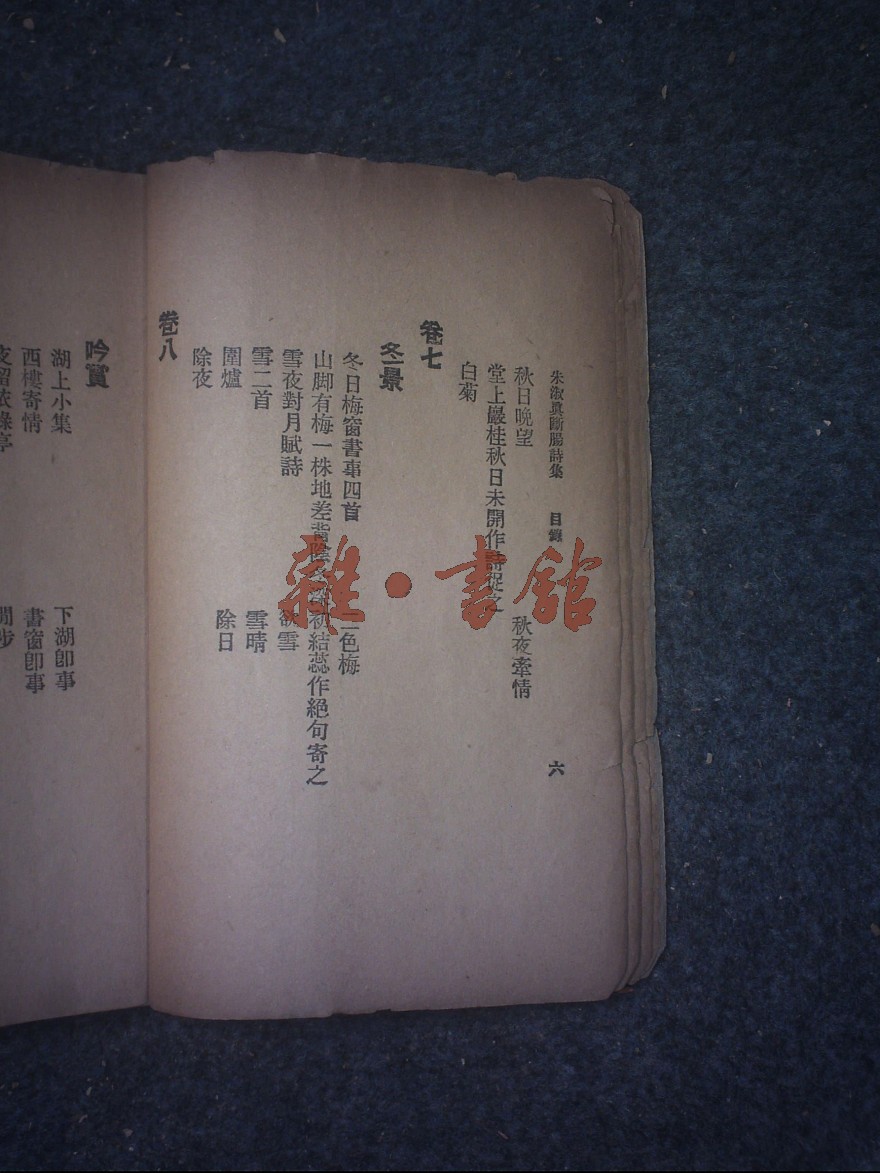 朱淑眞斷腸詩集 目錄 六
秋日晚望 秋夜牽情
堂上巖桂秋日未開作詩促之
白菊
卷七
冬景
冬日梅窗書事四首 二色梅
山脚有梅一株地差背陰 初結蕊作絕句寄之
雪夜對月賦詩 欲雪
雪二首 雪晴
圍爐 除日
除夜
卷八
吟賞
湖上小集 下湖卽事
西樓寄情 書窗卽事
夜留依綠亭 閒步
雜·書館